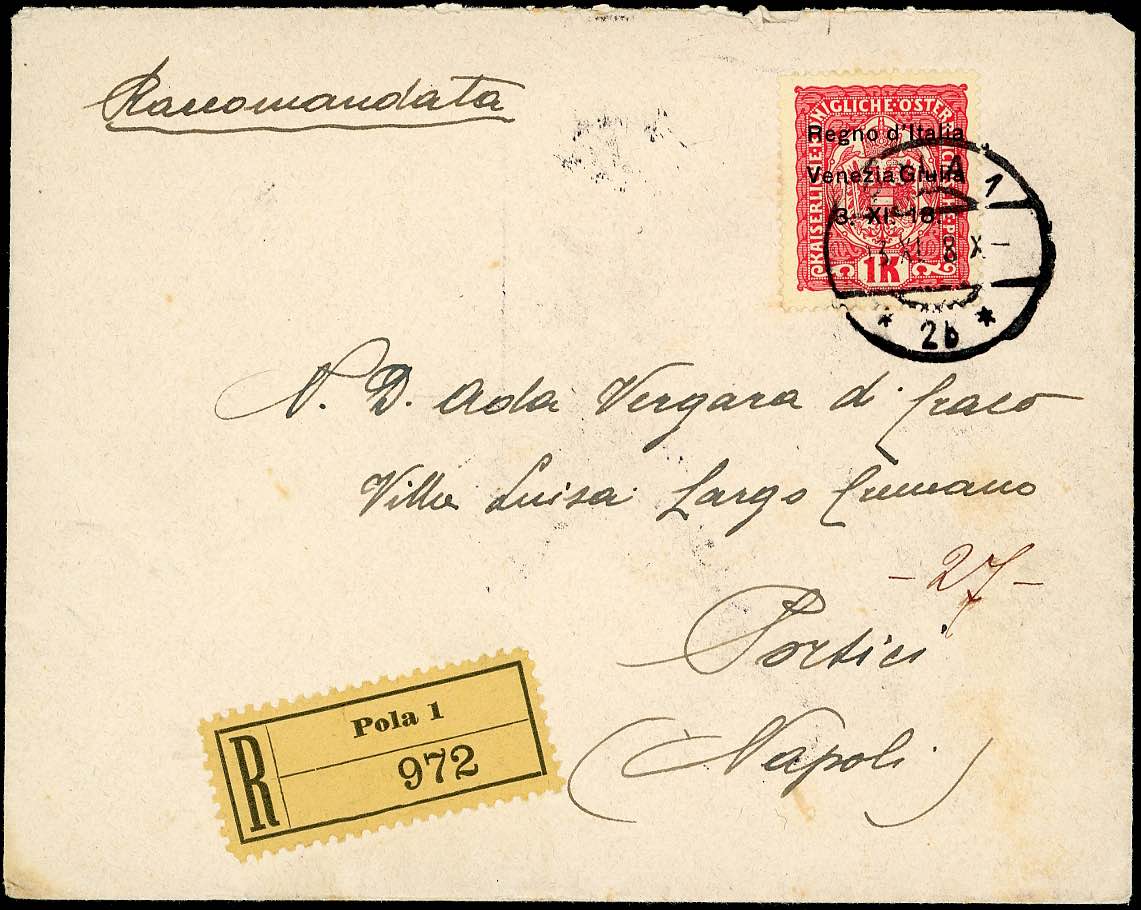 Raccomandata
KAISERLICHE KÖNIGLICHE ÖSTERREICHISCHE P
Regno d'Italia
Venezia Giulia
3. XI. 18.
1K
POLA 1
XI 8 X
* 2b *
N. D. Ada Vergara di Craco
Villa Luisa Largo Cumano
- 27 -
Portici
(Napoli)
R
Pola 1
972